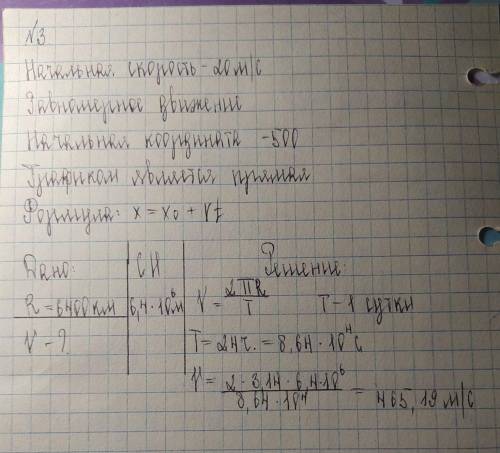 №3
Начальная скорость - 20 м/с
Равномерное движение
Начальная координата -500
Графиком является прямая
Формула: x = x₀ + Vt
Дано: СИ Решение:
R = 6400 км 6,4 · 10⁶ м V = 2ПR / T T - 1 сутки
V - ? T = 24 ч. = 8,64 · 10⁴ с
V = 2 · 3,14 · 6,4 · 10⁶ / 8,64 · 10⁴ = 465,19 м/с